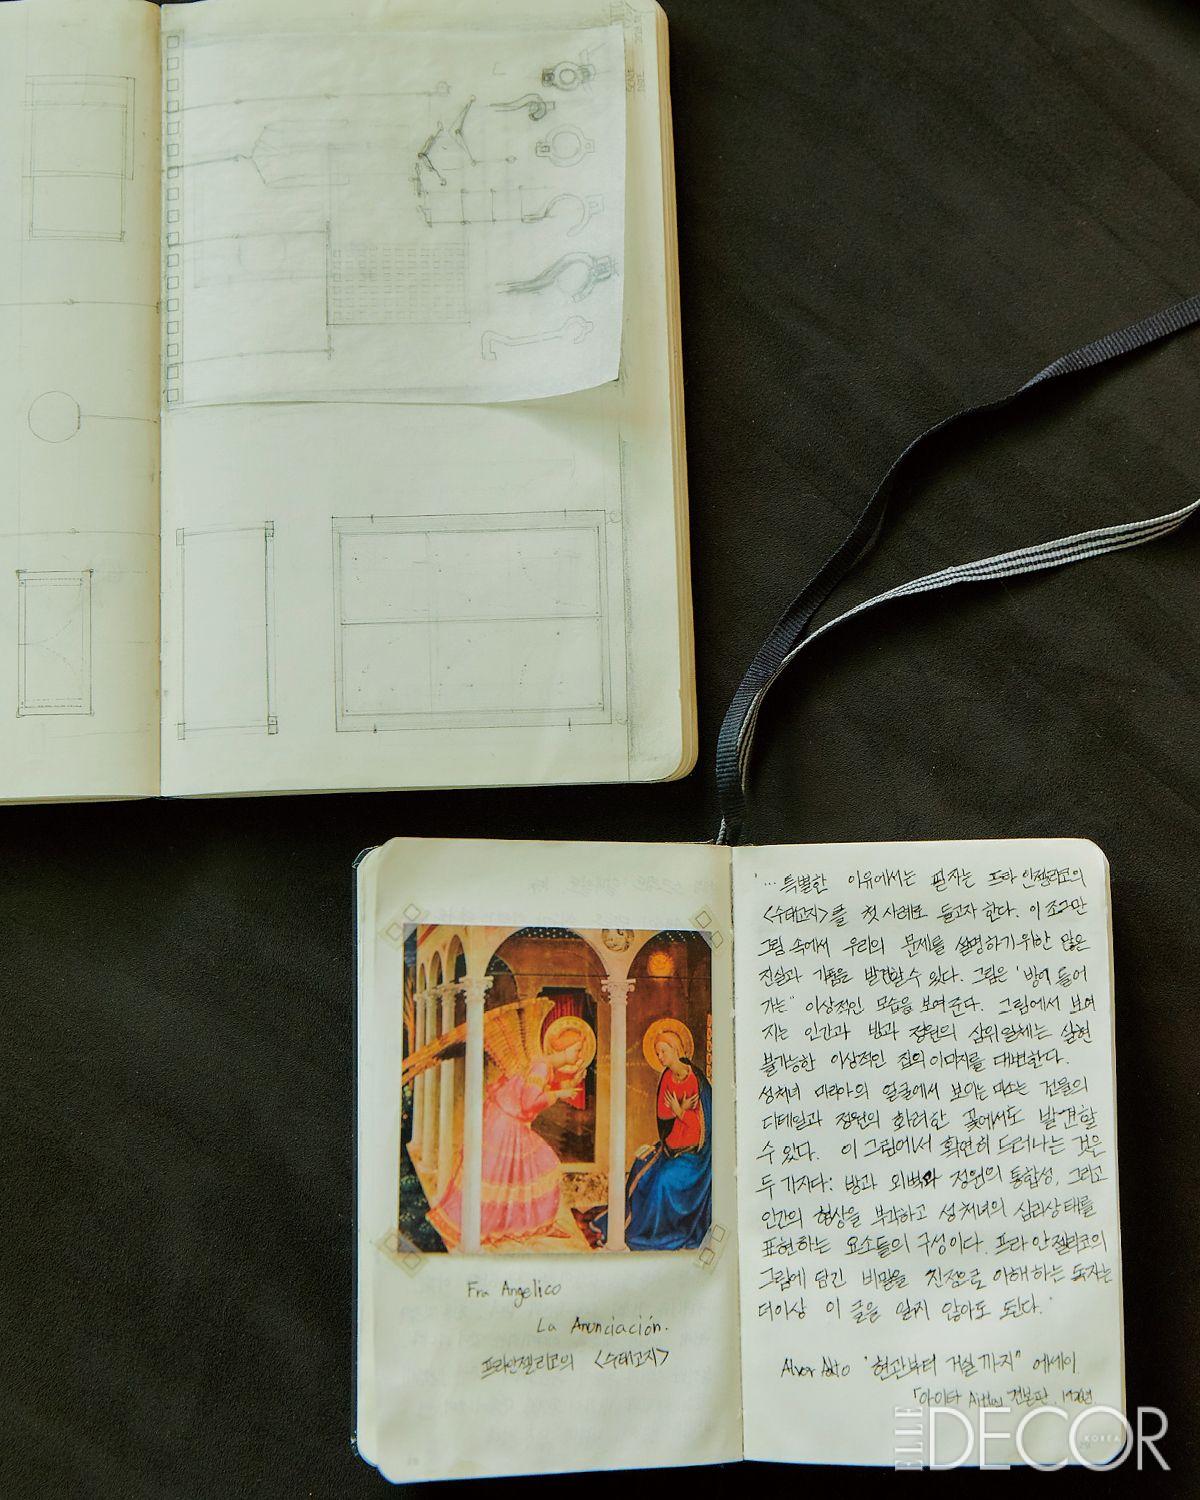 Fra Angelico
La Anunciación.
프라안젤리코의 <수태고지>
'…특별한 이유에서는 필자는 프라 안젤리코의
<수태고지>를 첫 사례로 들고자 한다. 이 조그만
그림 속에서 우리의 문제를 설명하기위한 많은
진실과 기품을 발견할 수 있다. 그림은 '방에 들어
가는" 이상적인 모습을 보여준다. 그림에서 보여
지는 인간과 방과 정원의 삼위일체는 실현
불가능한 이상적인 집의 이미지를 대변한다.
성처녀 마리아의 얼굴에서 보이는 미소는 건물의
디테일과 정원의 화려한 꽃에서도 발견할
수 있다. 이 그림에서 확연히 드러나는 것은
두 가지다: 방과 외벽과 정원의 통합성, 그리고
인간의 형상을 부각하고 성처녀의 심리상태를
표현하는 요소들의 구성이다. 프라 안젤리코의
그림에 담긴 비밀을 진정으로 이해하는 독자는
더이상 이 글을 읽지 않아도 된다.'
Alvar Aalto '현관부터 거실까지" 에세이.
「아이타 Aitta」 견본판, 1926년
ELLE DECOR KOREA